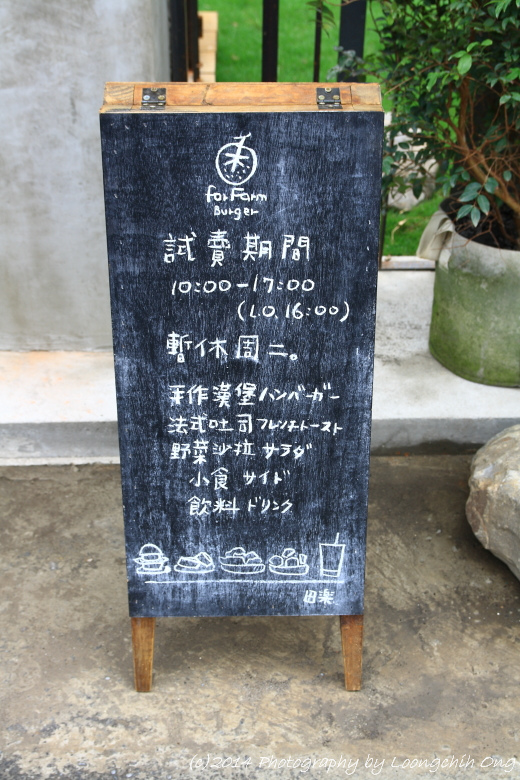 for Farm
Burger
試賣期間
10:00-17:00
(L.O. 16:00)
暫休周二。
手作漢堡 ハンバーガー
法式吐司 フレンチトースト
野菜沙拉 サラダ
小食 サイド
飲料 ドリンク
田楽
(c)2014 Photography by Loongchih Ong